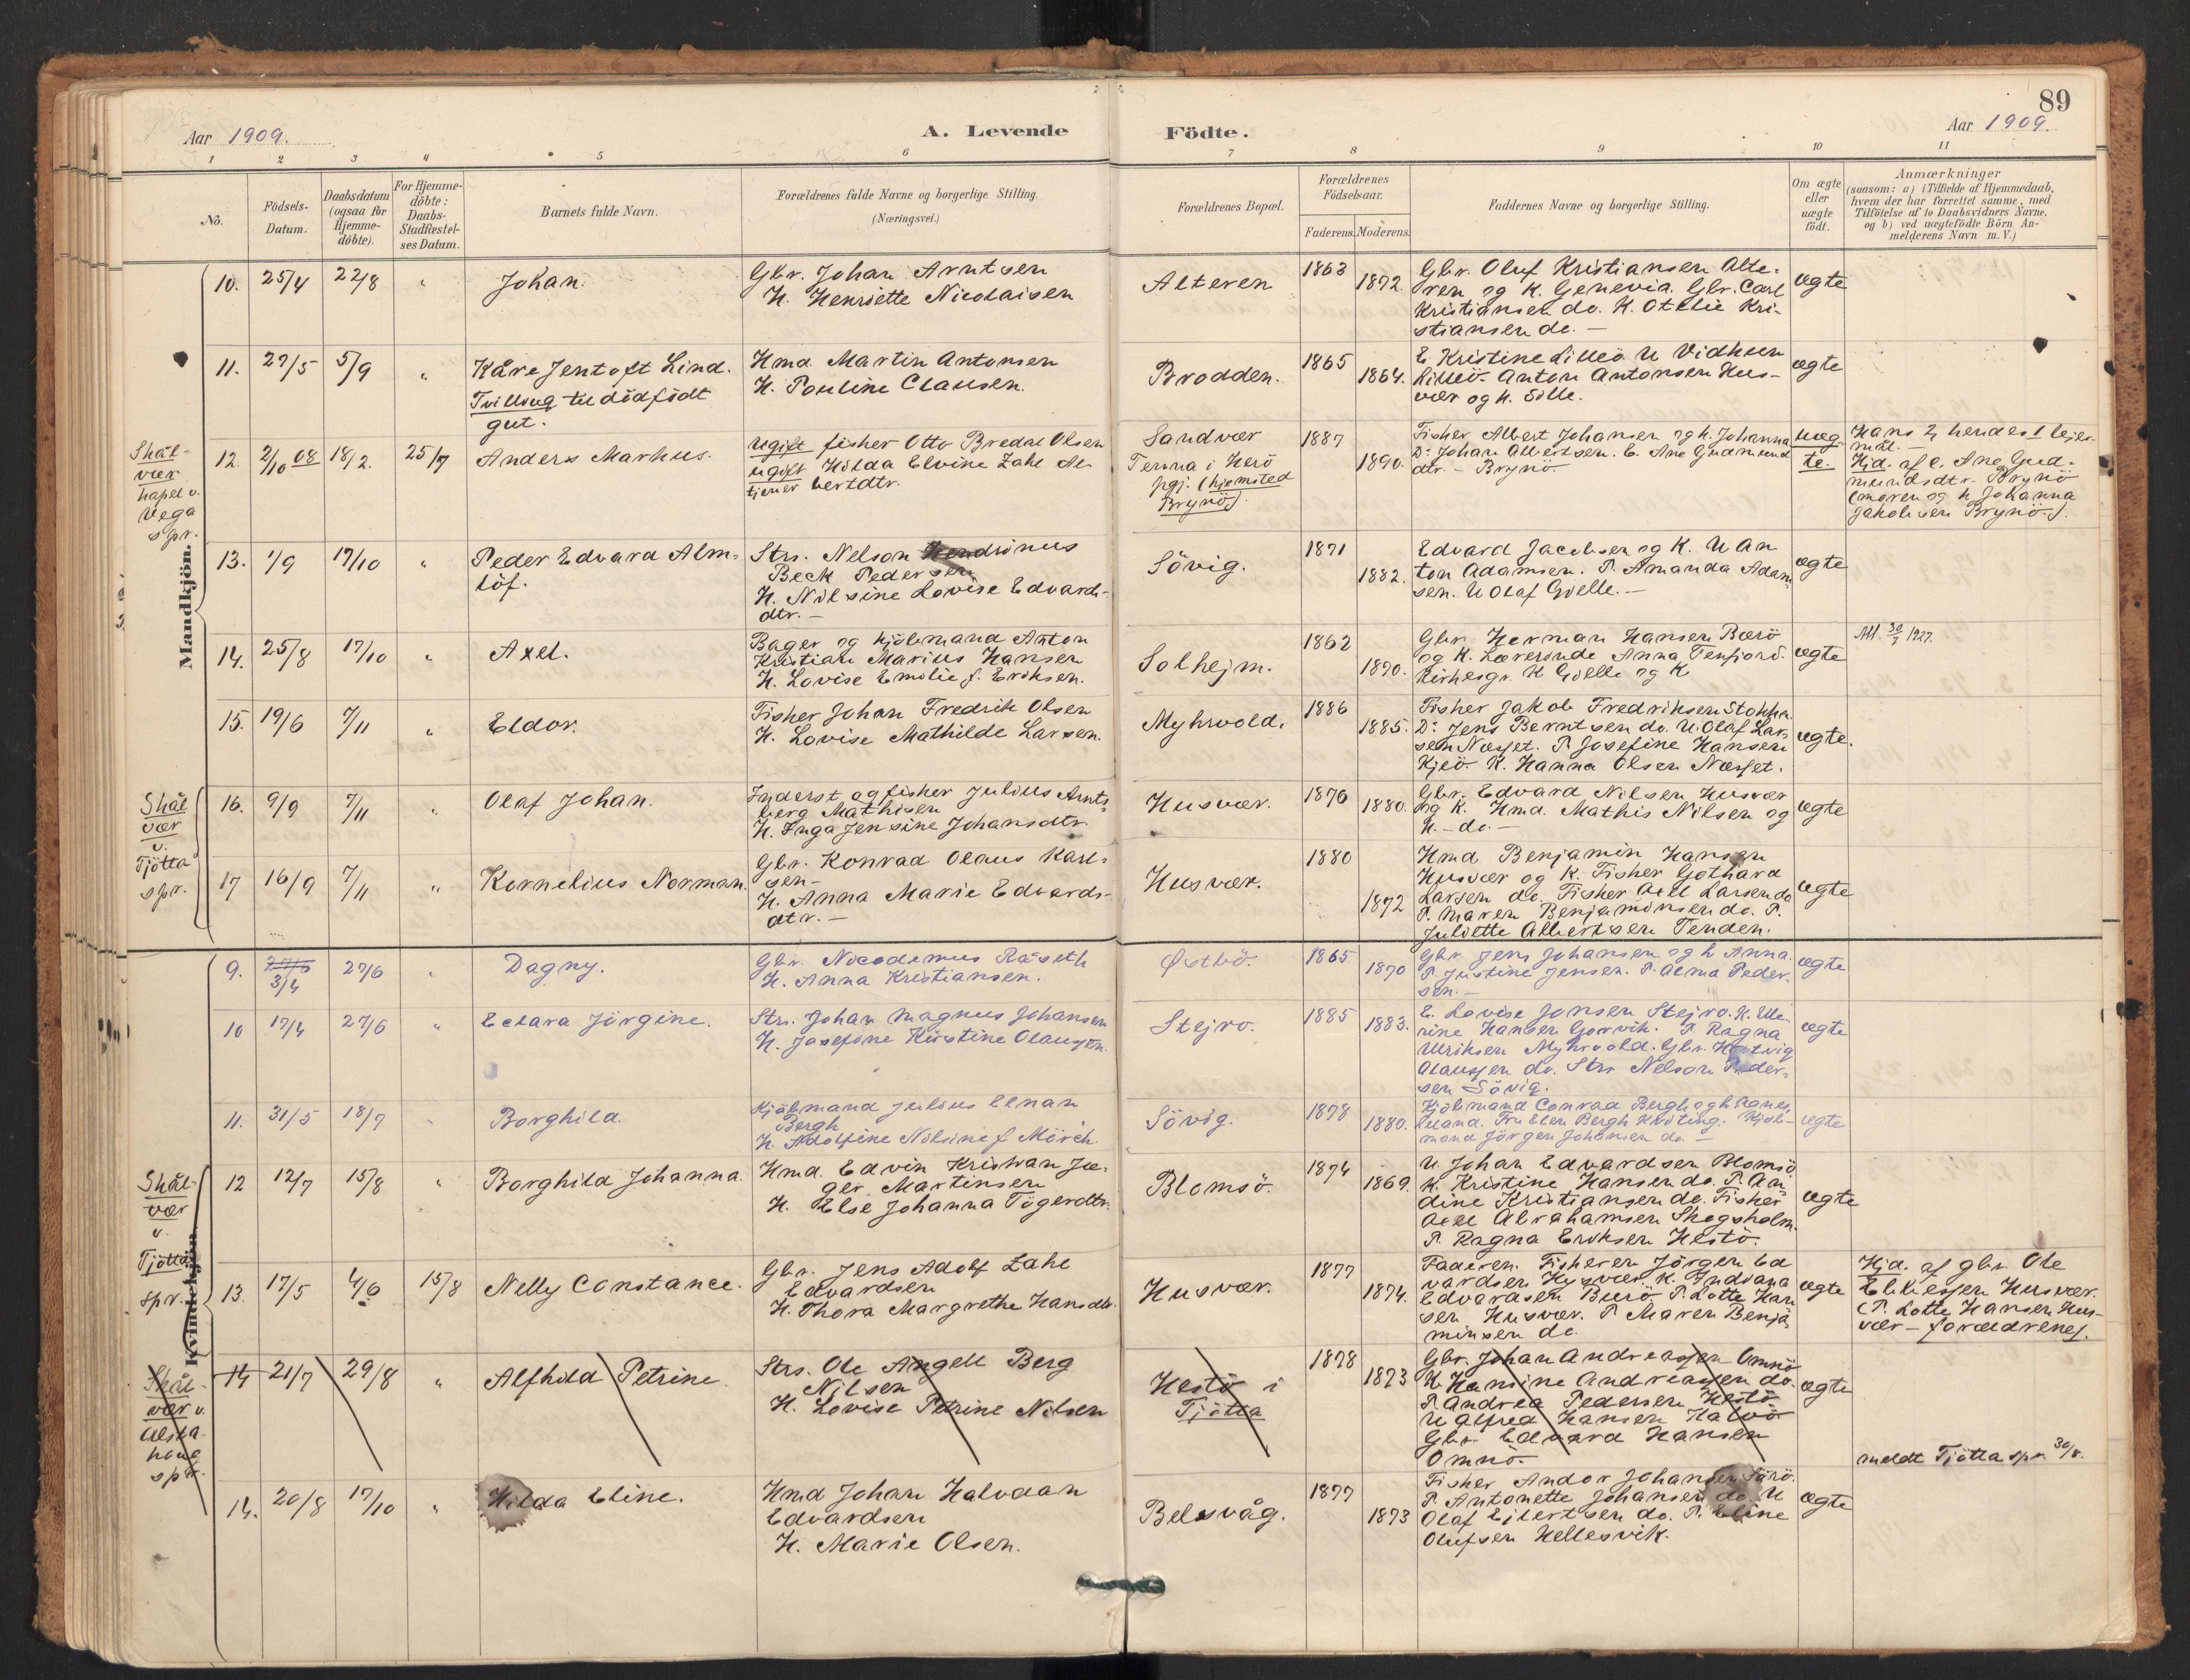 89
Aar 1909.
A. Levende
Födte.
Aar 1909.
1
2
3
4
5
6
7
8
9
10
11
No.
Födsels-
Datum.
Daabsdatum
(ogsaa for
Hjemme-
döbte).
For Hjemme-
döbte:
Daabs-
Stadfæstel-
ses Datum.
Barnets fulde Navn.
Forældrenes fulde Navne og borgerlige Stilling.
(Næringsvei.)
Forældrenes Bopæl.
Forældrenes
Födselsaar.
Faderens. Moderens.
Faddernes Navne og borgerlige Stilling.
Om ægte
eller
uægte
født.
Anmærkninger
(saasom: a) i Tilfælde af Hjemmedaab,
hvem der har forrettet samme, med
Tilföielse af to Daabsvidners Navne,
og b) ved uægtefödte Börn An-
melderens Navn m. V.)
Mandkjön.
10. 25/4 22/8 "
Johan.
Gbr. Johan Arntsen
H. Henriette Nicolaisen
Alteren
1863
1872.
Gbr. Oluf Kristiansen Alte-
ren og K. Genevia. Gbr. Carl
Kristiansen do. K. Otelie Kri-
stiansen do. —
ægte
11. 27/5 5/9 "
Kåre Jentoft Lind.
Tvilling til dödfödt
gut.
Hmd. Martin Antonsen
H. Pauline Clausen.
Brodden.
1865
1864.
E. Kristine Lilleö U
Lilleö. Anton Antonsen Hus-
vær og K. Sille.
ægte
Skål-
vær
kapel v.
Vega
spr.
12. 2/10 08 18/2. 25/7
Anders Markus.
ugift fisker Otto Bredal Olsen
ugift Hilda Elvine Zahl
tjener
Sandvær
Tenna i Herö
pgj. (hjemsted
Brynö).
1887
1890.
Fisker Albert Johansen og h. Johanna
D: Johan Albertsen. E. Ane Gudmund
dtr. — Brynö.
uæg-
te.
Hans 2, hendes 1 lejer-
mål. —
Hjd. af e. Ane Gud-
mundsdtr. Brynö
(moren og h Johanna
Jakobsen Brynö.).
13. 1/9 17/10 "
Peder Edvard Alm-
löf.
Strs. Nelson Hendrinus
Beck Pedersen
H. Nilsine Lovise Edvards-
dtr. —
Sövig.
1871
1882.
Edvard Jacobsen og K. U An
ton Adamsen. P. Amanda Adam
sen. U Olaf Gjelle. —
ægte
14. 25/8 17/10 "
Axel.
Bager og kjöbmand Anton
Kristian Marius Hansen
H. Lovise Emilie f. Eriksen.
Solhejm.
1862
1870.
Gbr. Herman Hansen Bærö
og K. Lærerinde Anna Tenfjord.
Kirkesgr. K Gjelle og K
ægte
Att. 30/7 1927.
15. 19/6 7/11 "
Eldor.
Fisker Johan Fredrik Olsen
H. Lovise Mathilde Larsen.
Myhrvold.
1886
1885.
Fisker Jakob Fredriksen Stokka.
D: Jens Berntsen do. U. Olaf Lar-
sen Næsset. P. Josefine Hansen
Kjeö. K. Hanna Olsen Næsset.
ægte.
Skål
vær
v.
Tjötta
spr.
16. 9/9 7/11 "
Olaf Johan.
Inderst og fisker Julius Arnts-
berg Mathisen
H. Inga Jensine Johansdtr.
Husvær.
1876
1880.
Gbr. Edvard Nilsen Husvær
og K. Hmd. Mathis Nilsen og
K. — do. —
ægte
17 16/9 7/11 "
Kornelius Norman.
Gbr. Konrad Olaus Karl-
sen —
H. Anna Marie Edvards-
dtr. —
Husvær.
1880
1872
Hmd Benjamin Hansen
Husvær og K. Fisker Gothard
Larsen do. Fisker Axel Larsen do
P. Maren Benjaminsen do. P.
Juliette Albertsen Tenden.
ægte
Kvindekjön.
9. 27/5 3/4 27/6 "
Dagny.
Gbr. Nicodemus Råseth
H. Anna Kristiansen.
Østbö.
1865
1870
Gbr. Jens Johansen og h Anna.
P. Justine Jensen. P. Alma Peder-
sen. —
ægte
10 17/4 27/6 "
Eclara Jörgine.
Strs. Johan Magnus Johansen
H. Josefine Kirstine Olaussen.
Stejro.
1885
1883.
E. Lovise Jonsen Stejro. K. Elle-
rine Hansen Gorvik. P. Ragna
Ulriksen Myhrvold. Gbr. Hartvig
Olaussen do. Strs Nelson Peder-
sen Sövig.
ægte
11. 31/5 18/7 "
Borghild.
Kjöbmand Julius Elnan
Bergh
H. Adolfine Nilsine f Mörch.
Sövig.
1878
1880.
Kjöbmand Conrad Bergh og h Agnes
Fru Elen Bergh. Kjöb-
mand Jörgen Johansen do —
ægte
Skål-
vær
v.
Tjötta
spr.
12 12/7 15/8 "
Borghild Johanna.
Hmd. Edvin Kristian Jæ-
ger Martinsen
H. Else Johanna Tögersdtr.
Blomsö.
1874
1869.
U. Johan Edvardsen Blomsö
K. Kristine Hansen do. P. An-
dine Kristiansen do. Fisker
Axel Abrahamsen Skogsholm.
P. Ragna Eriksen Hestö.
ægte
13. 17/5 4/6 15/8
Nelly Constance.
Gbr. Jens Adolf Zahl
Edvardsen
H. Thora Margrethe Hansdtr.
Husvær.
1877
1874.
Faderen. Fiskeren Jörgen Ed
vardsen Husvær K. Indiana
Edvardsen Burö. P. Lotte Han
sen Husvær. P. Maren Benja-
minsen do.
ægte
Hjd. af gbr. Ole
Ellingsen Husvær.
(P. Lotte Hansen Hus-
vær — forældrene).
Skål-
vær v.
Alsta-
haug
spr.
14 21/7 29/8 "
Alfhild Petrine.
Strs. Ole Angell Berg
Nilsen
H. Lovise Petrine Nilsen
Hestö i
Tjötta
1878
1873
Gbr. Johan Andreassen Omnö
K Hansine Andreassen do.
P. Andrea Pedersen Hestö
U Alfred Hansen Halvö
Gbr. Edvard Hansen
Omnö.
ægte
meldt Tjötta spr. 30/8.
14. 20/8 17/10 "
Hilda Eline.
Hmd Johan Halvdan
Edvardsen
H. Marie Olsen.
Belsvåg.
1877
1873
Fisker Andor Johansen Sörö.
P. Antonette Johansen do. U
Olaf Eilertsen do. P. Eline
Olufsen Hellesvik.
ægte